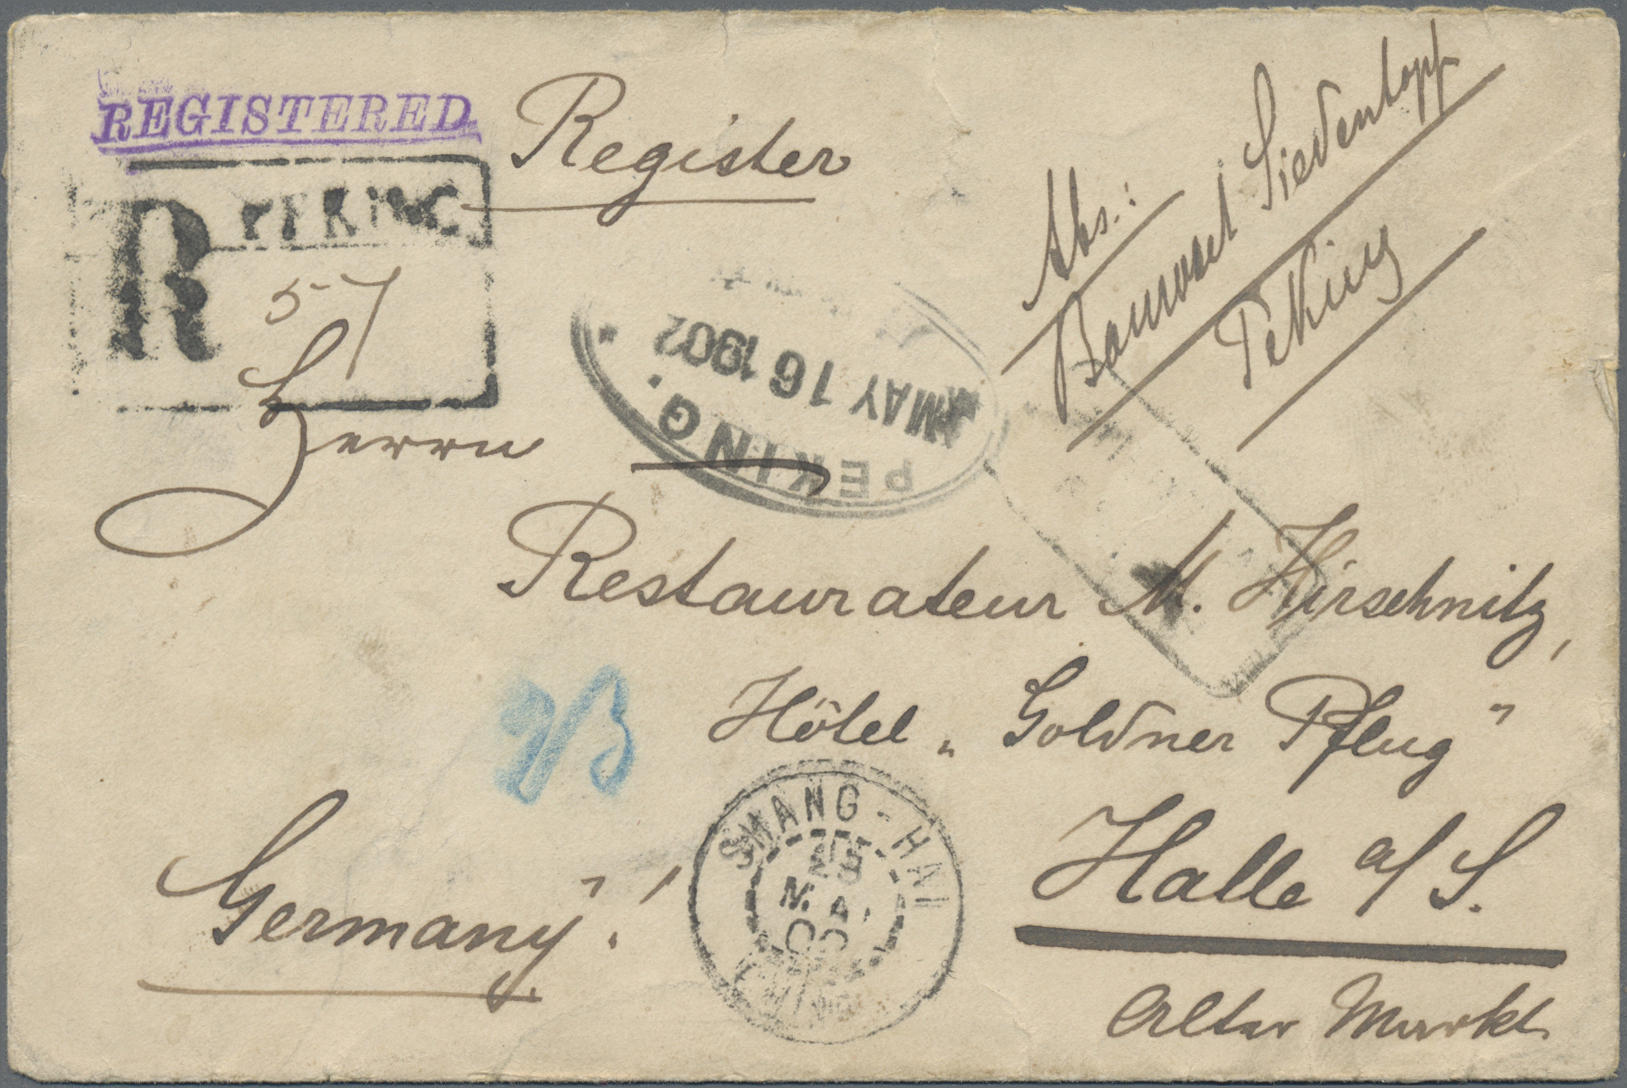 REGISTERED
Register
R PEKING
57
Abs.:
Baurat Siedentopf
Peking
PEKING.
MAY 16 1902
Herrn
Restaurateur M. Hirschnitz,
Hôtel „Goldner Pflug"
Halle a/S.
Alter Markt
Germany!
SHANG-HAI
MAI
02
CHINE